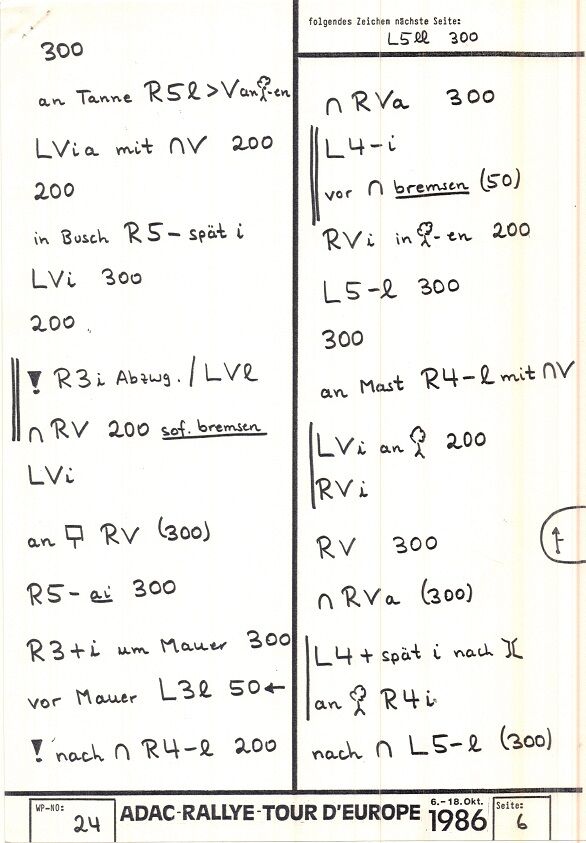 300
an Tanne R5l > V an -en
LVia mit ∩V 200
200
in Busch R5- spät i
LVi 300
200
! R3i Abzwg. / LVl
∩ RV 200 sof. bremsen
LVi
an RV (300)
R5- ai 300
R3+i um Mauer 300
vor Mauer L3l 50←
! nach ∩ R4-l 200
folgendes Zeichen nächste Seite:
L5ll 300
∩ RVa 300
L4-i
vor ∩ bremsen (50)
RVi in -en 200
L5-l 300
300
an Mast R4-l mit ∩V
LVi an 200
RVi
RV 300
∩ RVa (300)
L4+ spät i nach )(
an R4i
nach ∩ L5-l (300)
WP-NO: 24
ADAC-RALLYE-TOUR D'EUROPE 6.-18.Okt. 1986
Seite: 6